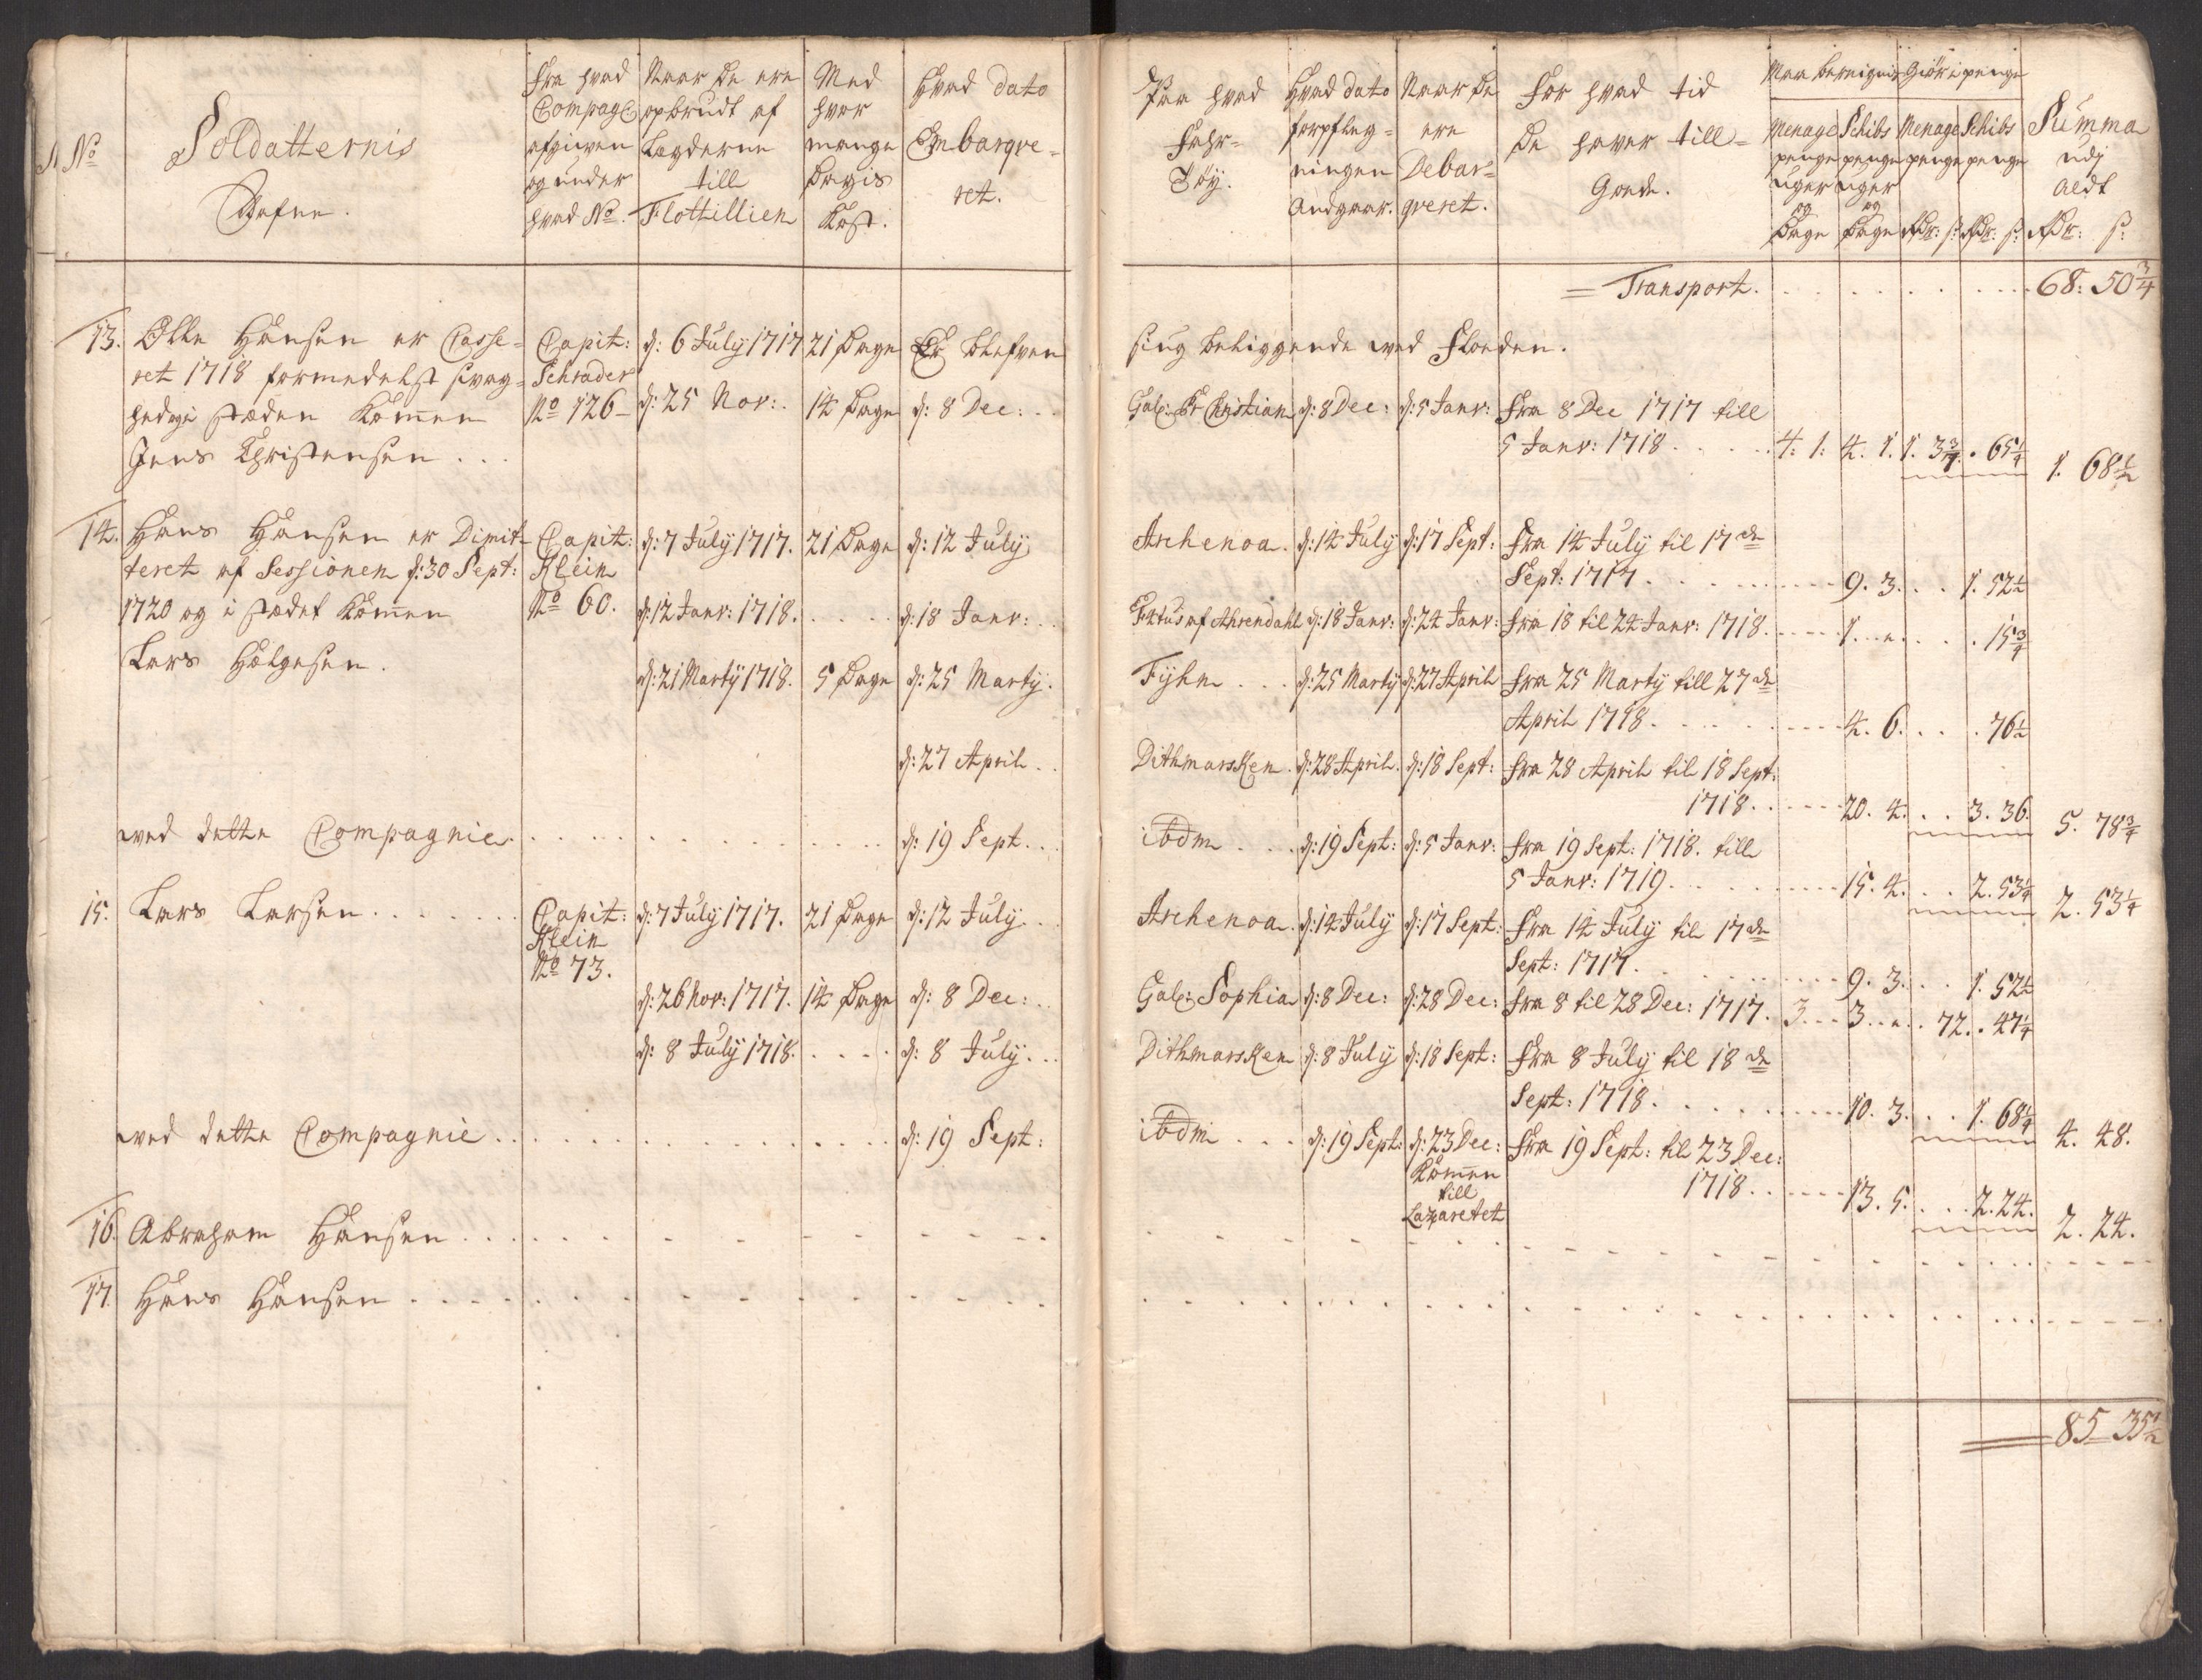 No
Soldatternis
Nafne.
Fra hvad
Compagᵉ
afgiven
og under
hvad No.
Naar De ere
opbrudt af
Lægderne
till
Flottillien
Med
hvor
mange
Dagis
Kost.
Hvad Dato
Embarqve-
ret.
Paa hvad
Fahr-
Tøy.
Hvad dato
forpfleg-
ningen
Andgaar.
Naar De
ere
Debar-
qveret.
For hvad tid
De haver till-
Gode.
Giør i penge
Menage
penge
uger
og
Dage
Schibs
penge
uger
og
Dage
Menage
penge
Rdr: ß:
Schibs
penge
Rdr: ß:
Summa
udj
aldt
Rdr: ß:
Transport. 68: 50 3/4
13. Olle Hansen er Casse-
ret 1718 formedelst svag-
hed og i stæden Kommen
Jens Christensen
Capit:
Schrader
No 126
d: 6 July 1717 21 Dage Er blefven
siug beliggende ved Floeden.
d: 25 Nov: 14 Dage d: 8 Dec:
Gal: Pr Christian d: 8 Dec: d: 5 Janv: fra 8 Dec 1717 till
5 Janv: 1718. 4. 1. 4. 1. 1. 3 3/4. 65 1/4
1. 68 1/2
14. Hans Hansen er Dimit-
teret af Sessionen d: 30 Sept:
1720 og i stædet Kommen
Lars Hølgesen.
Capit:
Klein
No 60.
d: 7 July 1717. 21 Dage d: 12 July
Archenoa. d: 14 July d: 17 Sept: fra 14 July til 17de
Sept: 1717. 9. 3. 1. 52 1/2
d: 12 Janv: 1718. d: 18 Janv:
af Ahrendahl d: 18 Janv: d: 24 Janv: fra 18 til 24 Janv: 1718. 1. 15 3/4
d: 21 Marty 1718. 5 Dage d: 25 Marty.
Fyhn d: 25 Marty d: 27 April fra 25 Marty till 27de
April 1718. 4. 6. 76 1/2
d: 27 April
Dithmarsken. d: 28 April. d: 18 Sept: fra 28 April til 18 Sept:
1718. 20. 4. 3. 36. 5. 78 3/4
ved dette Compagnie d: 19 Sept.
ibdm d: 19 Sept: d: 5 Janv: fra 19 Sept: 1718. till
5 Janv: 1719. 15. 4. 2. 53 1/4 2. 53 1/4
15. Lars Larsen
Capit:
Klein
No 73.
d: 7 July 1717. 21 Dage d: 12 July
Archenoa. d: 14 July d: 17 Sept: fra 14 July til 17de
Sept: 1717. 9. 3. 1. 52 1/2
d: 26 Nov: 1717. 14 Dage d: 8 Dec:
Gal: Sophia d: 8 Dec: d: 28 Dec: fra 8 til 28 Dec: 1717. 3 3 72. 47 1/4
d: 8 July 1718. d: 8 July
Dithmarsken d: 8 July d: 18 Sept: fra 8 July til 18de
Sept: 1718. 10. 3. 1. 68 1/4 4. 48.
ved dette Compagnie d: 19 Sept:
ibdm d: 19 Sept: d: 23 Dec: fra 19 Sept: til 23 Dec:
Kommen
till
Lazaretet
1718. 13. 5. 2. 24. 2. 24.
16. Abraham Hansen
17. Hans Hansen
85 35 1/2